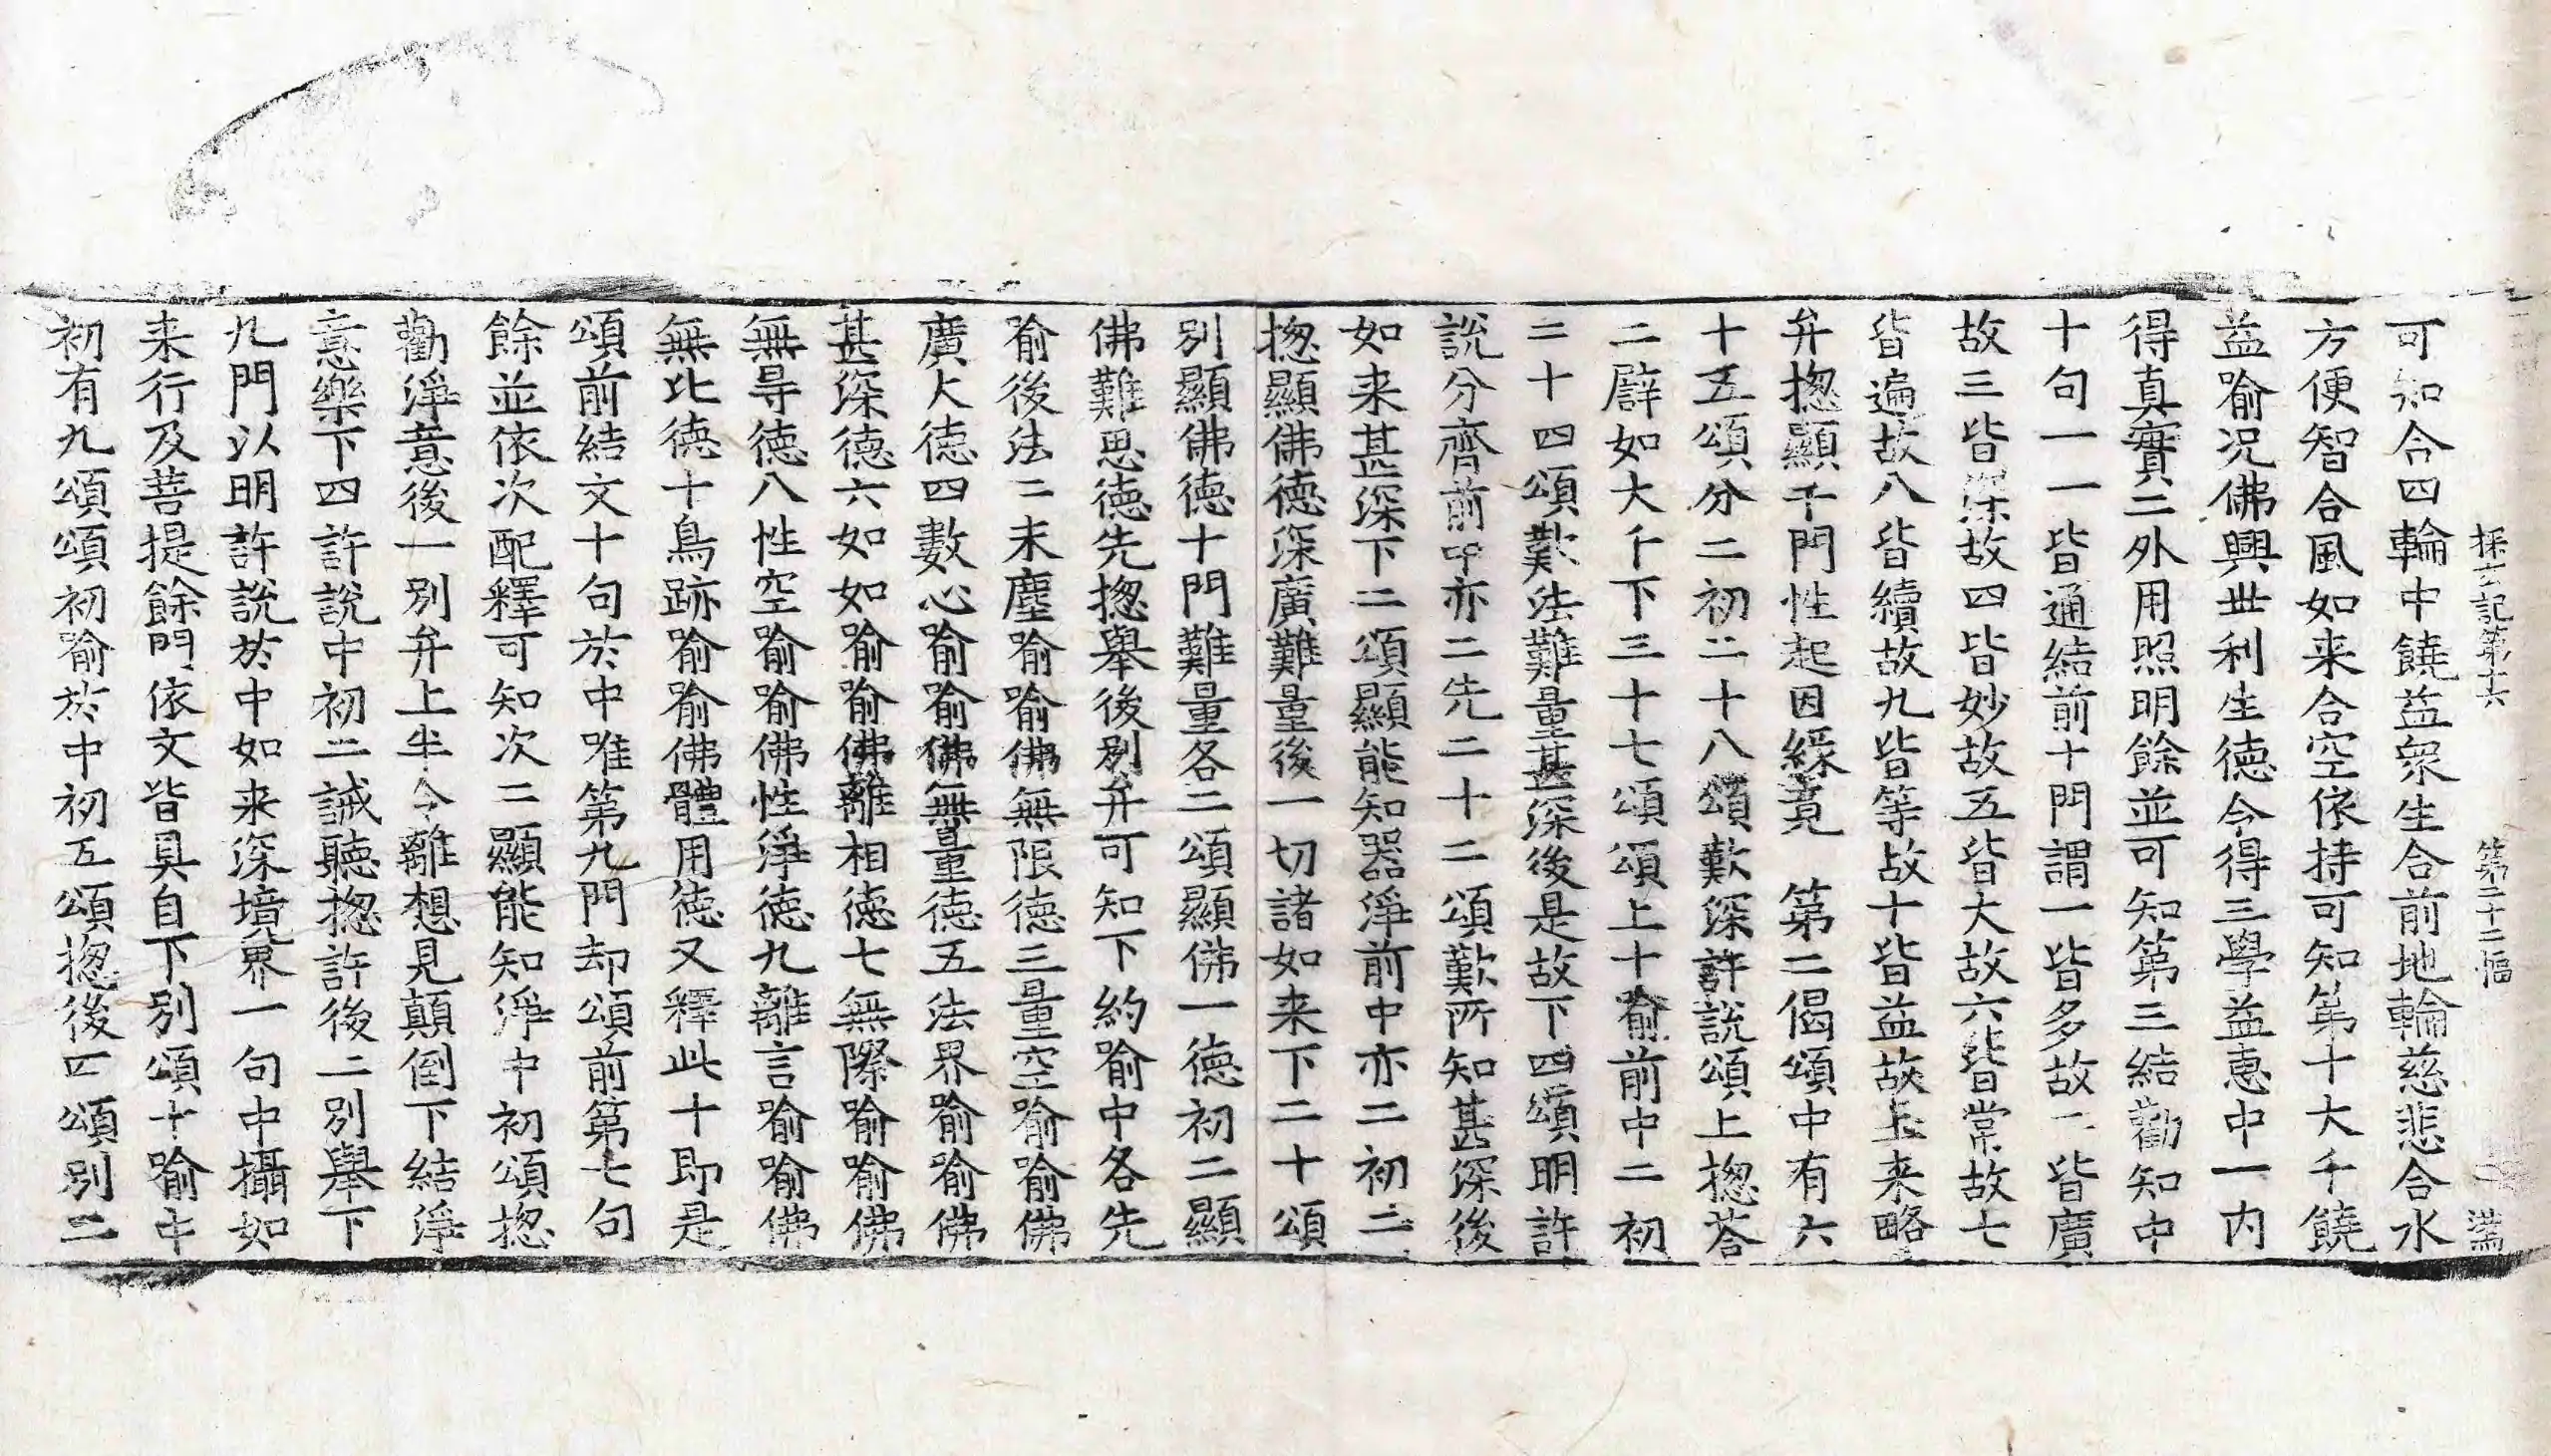 探玄記第十六 第二十二幅 滿
可知合四輪中饒益衆生合前地輪慈悲合水
方便智合風如来合空依持可知第十大千饒
益喻况佛興世利生徳今得三學益恵中一内
得真實二外用照明餘並可知第三結勸知中
十句一一皆通結前十門謂一皆多故二皆廣
故三皆深故四皆妙故五皆大故六皆常故七
皆遍故八皆續故九皆等故十皆益故上来略
弁揔顯千門性起因緣竟 第二偈頌中有六
十五頌分二初二十八頌歎深許說頌上揔荅
二辟如大千下三十七頌頌上十喻前中二初
二十四頌歎法難量甚深後是故下四頌明許
說分齊前中亦二先二十二頌歎所知甚深後
如来甚深下二頌顯能知器淨前中亦二初二
揔顯佛徳深廣難量後一切諸如来下二十頌
別顯佛徳十門難量各二頌顯佛一徳初二顯
佛難思徳先揔舉後別弁可知下約喻中各先
喻後法二末塵喻喻佛無限徳三量空喻喻佛
廣大徳四數心喻喻佛無量徳五法界喻喻佛
甚深徳六如如喻喻佛離相徳七無際喻喻佛
無㝵徳八性空喻喻佛性淨徳九離言喻喻佛
無比徳十鳥跡喻喻佛體用徳又釋此十即是
頌前結文十句於中唯第九門却頌前第七句
餘並依次配釋可知次二顯能知淨中初頌揔
勸淨意後一別弁上半令離想見顛倒下結淨
意樂下四許說中初二誡聽揔許後二別舉下
九門以明許說於中如来深境界一句中攝如
来行及菩提餘門依文皆具自下別頌十喻中
初有九頌頌初喻於中初五頌揔後四頌別二